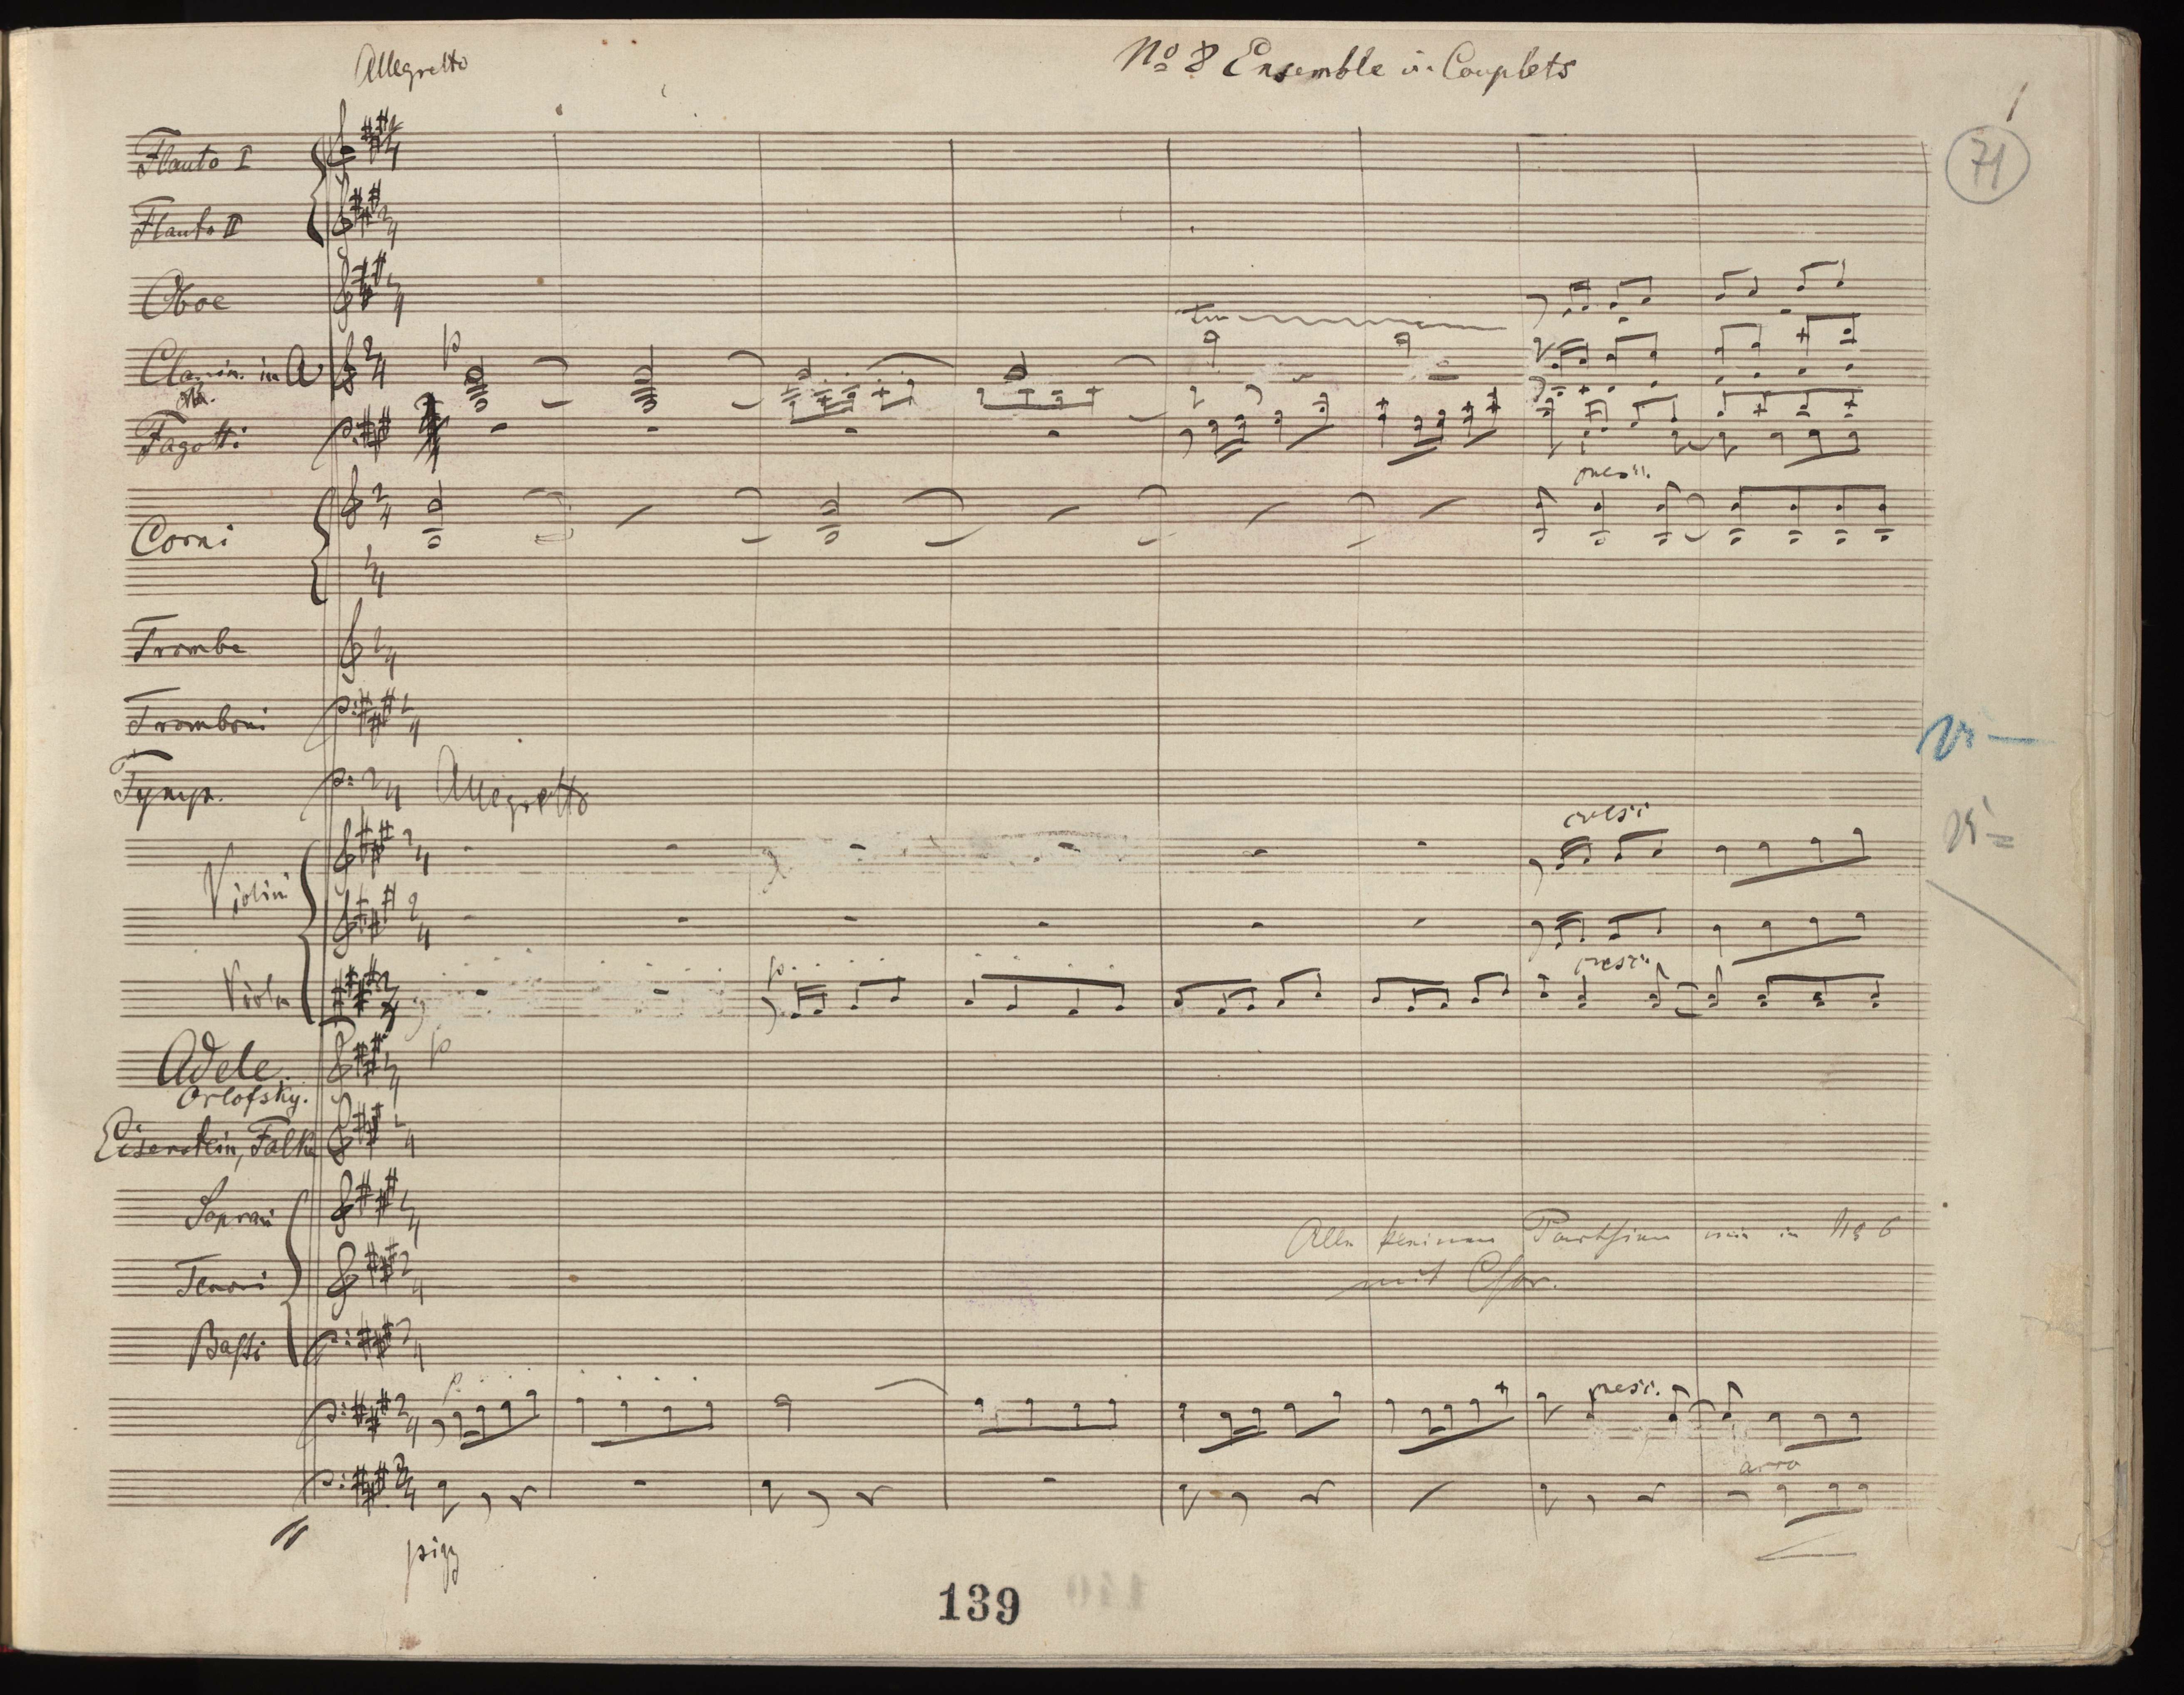 Allegretto
No 8 Ensemble u. Couplets
1
71
Flauto I
Flauto II
Oboe
tr
p
Clarin. in A
Fagotti
cresc.
Corni
Trombe
Tromboni
Tymp.
Allegretto
Vi-
cresc
Vi=
Violini
cresc.
p
Viola
p
Adele.
Orlofsky.
Eisenstein, Falke
Soprani
Alle kleinen Parthien wie in No 6
mit Chor.
Tenori
Bassi
p
cresc.
arco
pizz
139
140